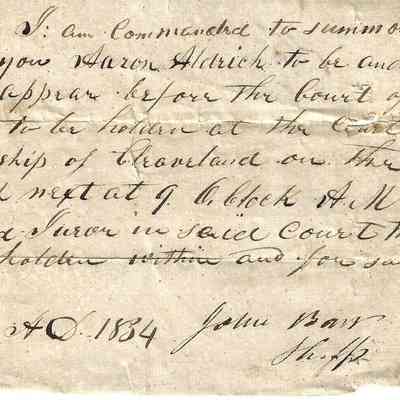 I: am Commanded to summo
you Aaron Aldrich to be and
appear before the Court o
to be holden at the Court
ship of Cleaveland on the
next at 9. O,Clock A.M
Juror in said Court
holden within and for sa
A.D. 1834 John Barr
Shff